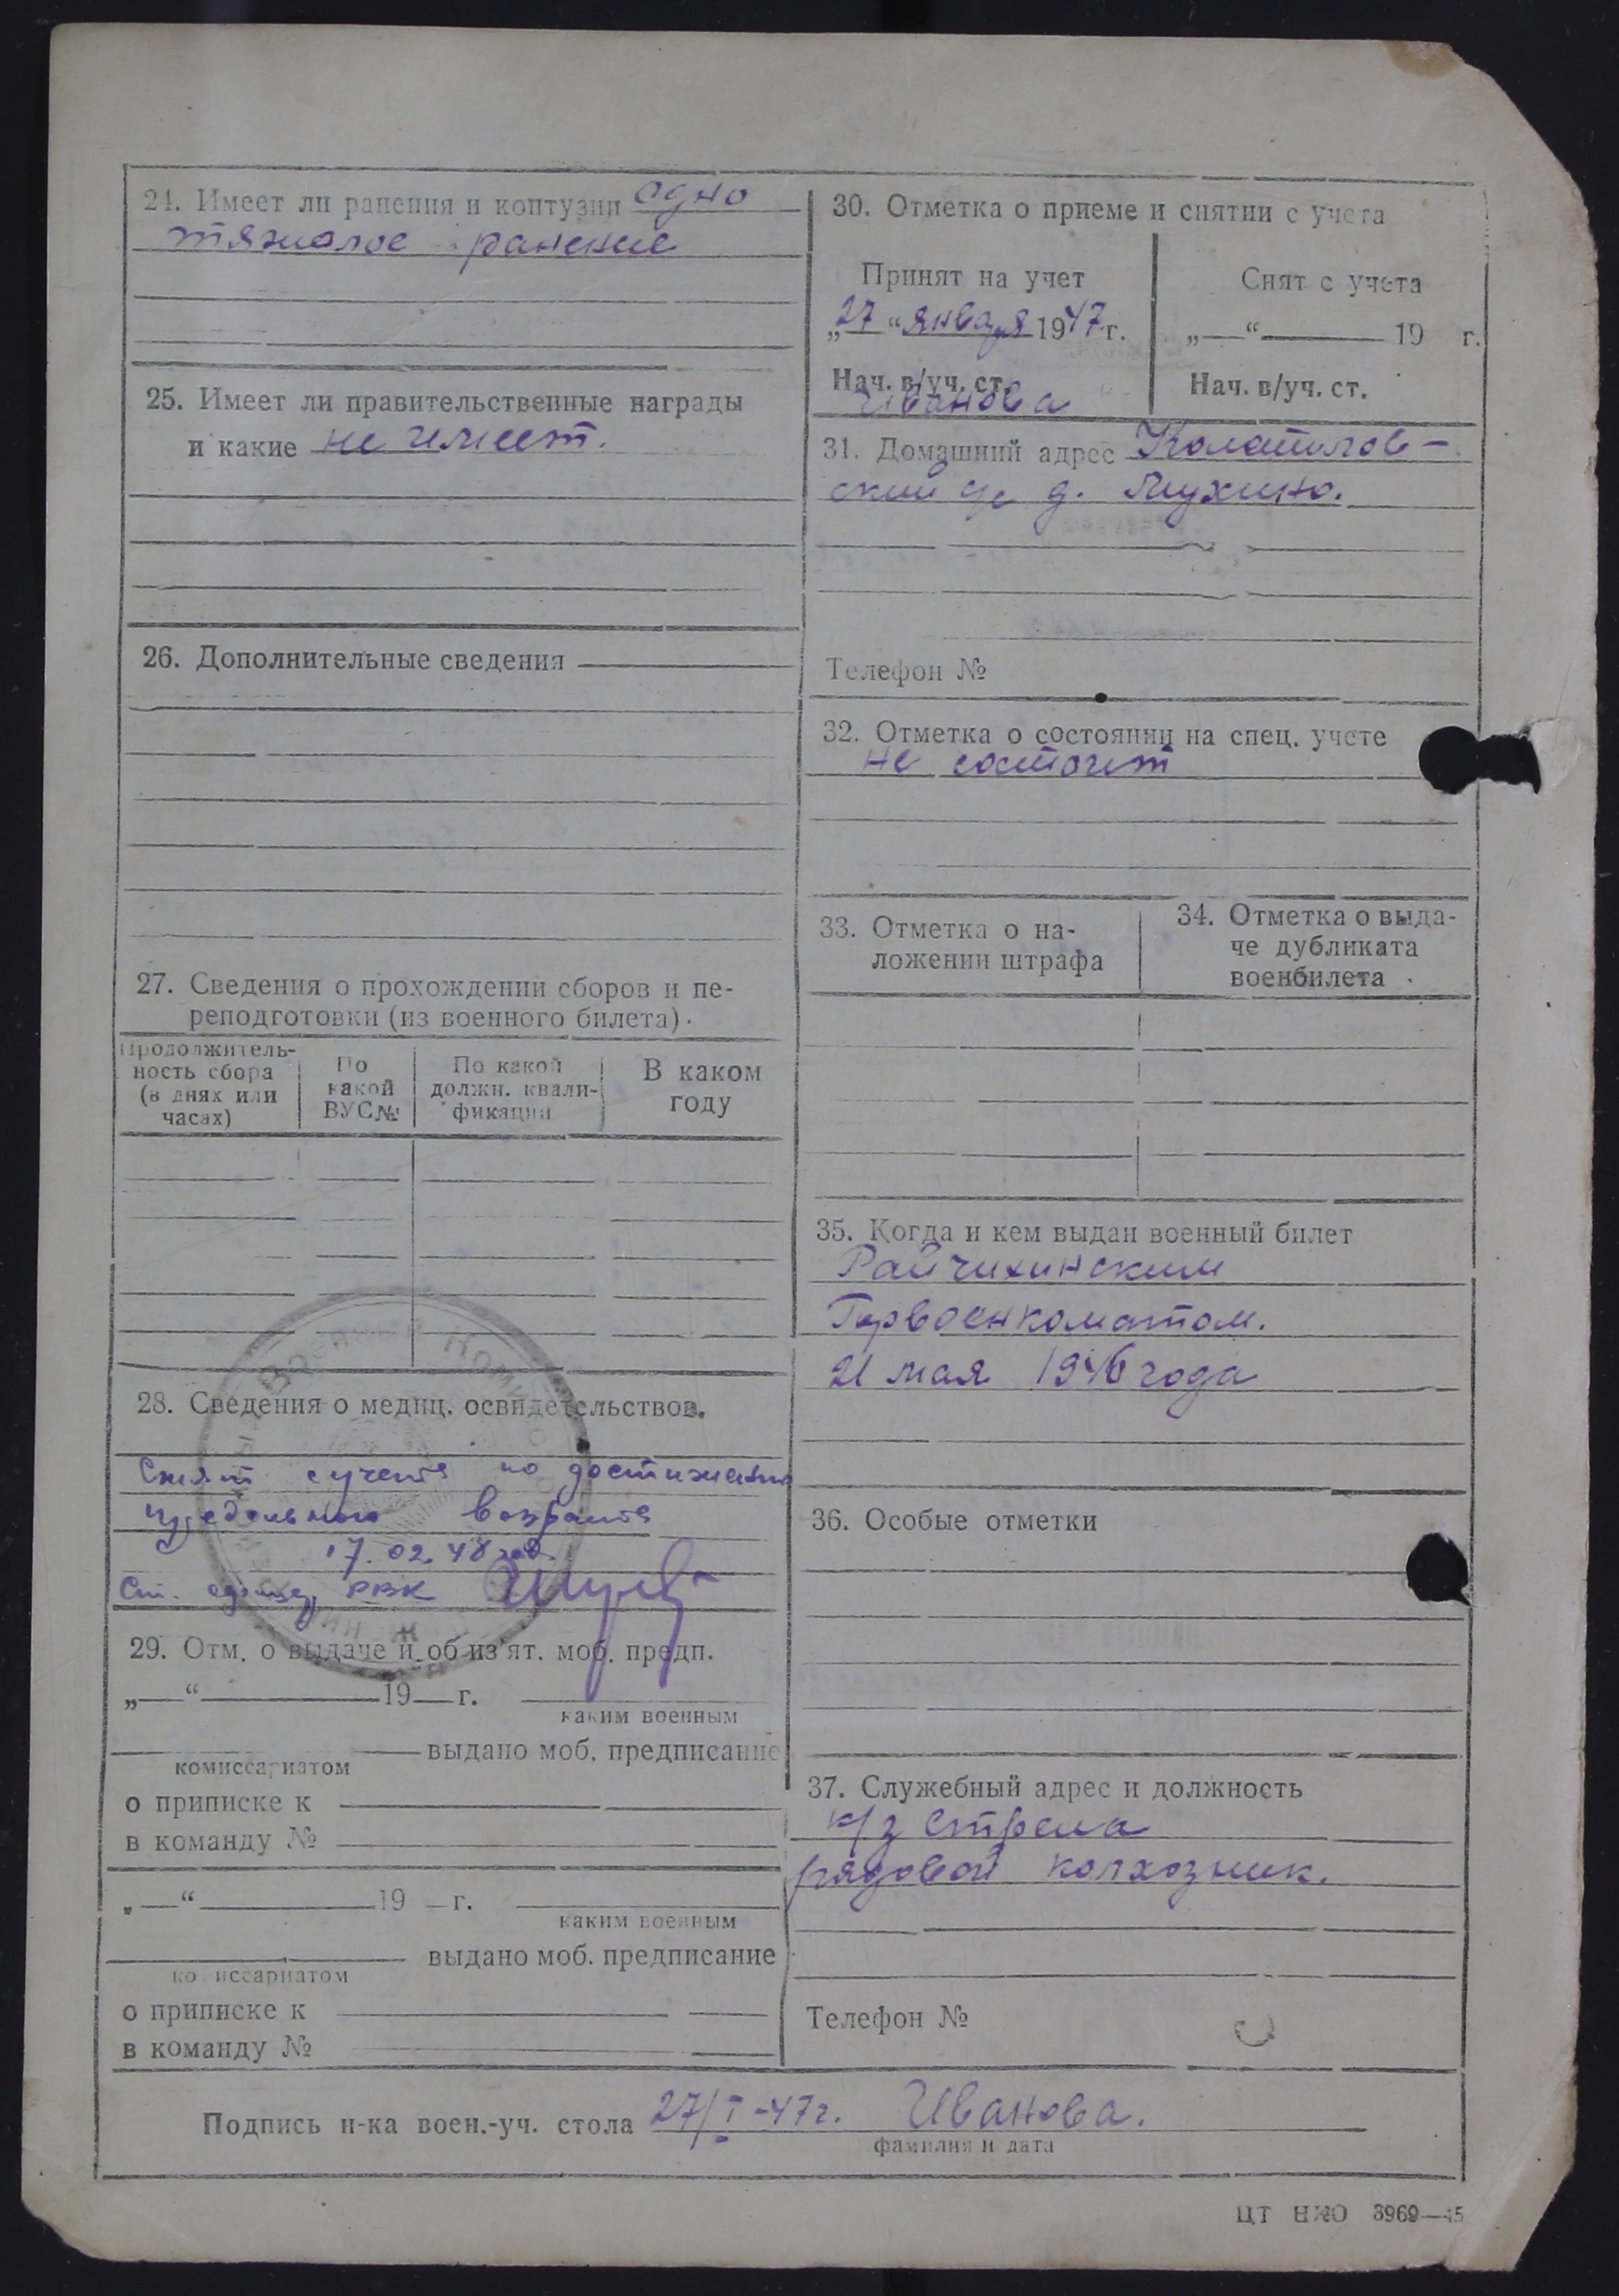 24. Имеет ли ранения и контузии одно
тяжолое ранение
25. Имеет ли правительственные награды
и какие не имеет.
26. Дополнительные сведения
27. Сведения о прохождении сборов и пе-
реподготовки (из военного билета)
Продолжитель-
ность сбора
(в днях или
часах)
По
какой
ВУС№
По какой
должн. квали-
фикации
В каком
году
28. Сведения о медиц. освидетельствов.
Снят с учета по достижению
предельного возраста
17.02.48
Ст. РВК
29. Отм. о выдаче и об из'ят. моб. предп.
„—“ 19 г.
каким военным
комиссариатом
выдано моб. предписание
о приписке к
в команду №
„—“ 19 г.
каким военным
выдано моб. предписание
комиссариатом
о приписке к
в команду №
30. Отметка о приеме и снятии с учета
Принят на учет
„27“ января 1947 г.
Нач. в/уч. ст.
Иванова
Снят с учета
„—“ 19 г.
Нач. в/уч. ст.
31. Домашний адрес
ский с/с д. Мухино.
Телефон №
32. Отметка о состоянии на спец. учете
не состоит
33. Отметка о на-
ложении штрафа
34. Отметка о выда-
че дубликата
военбилета
35. Когда и кем выдан военный билет
Райчихинским
Горвоенкоматом.
21 мая 1946 года
36. Особые отметки
37. Служебный адрес и должность
к/з Стрела
рядовой колхозник.
Телефон №
Подпись н-ка воен.-уч. стола 27/I-47г. Иванова.
фамилия и дата
ЦТ НКО 3969—45